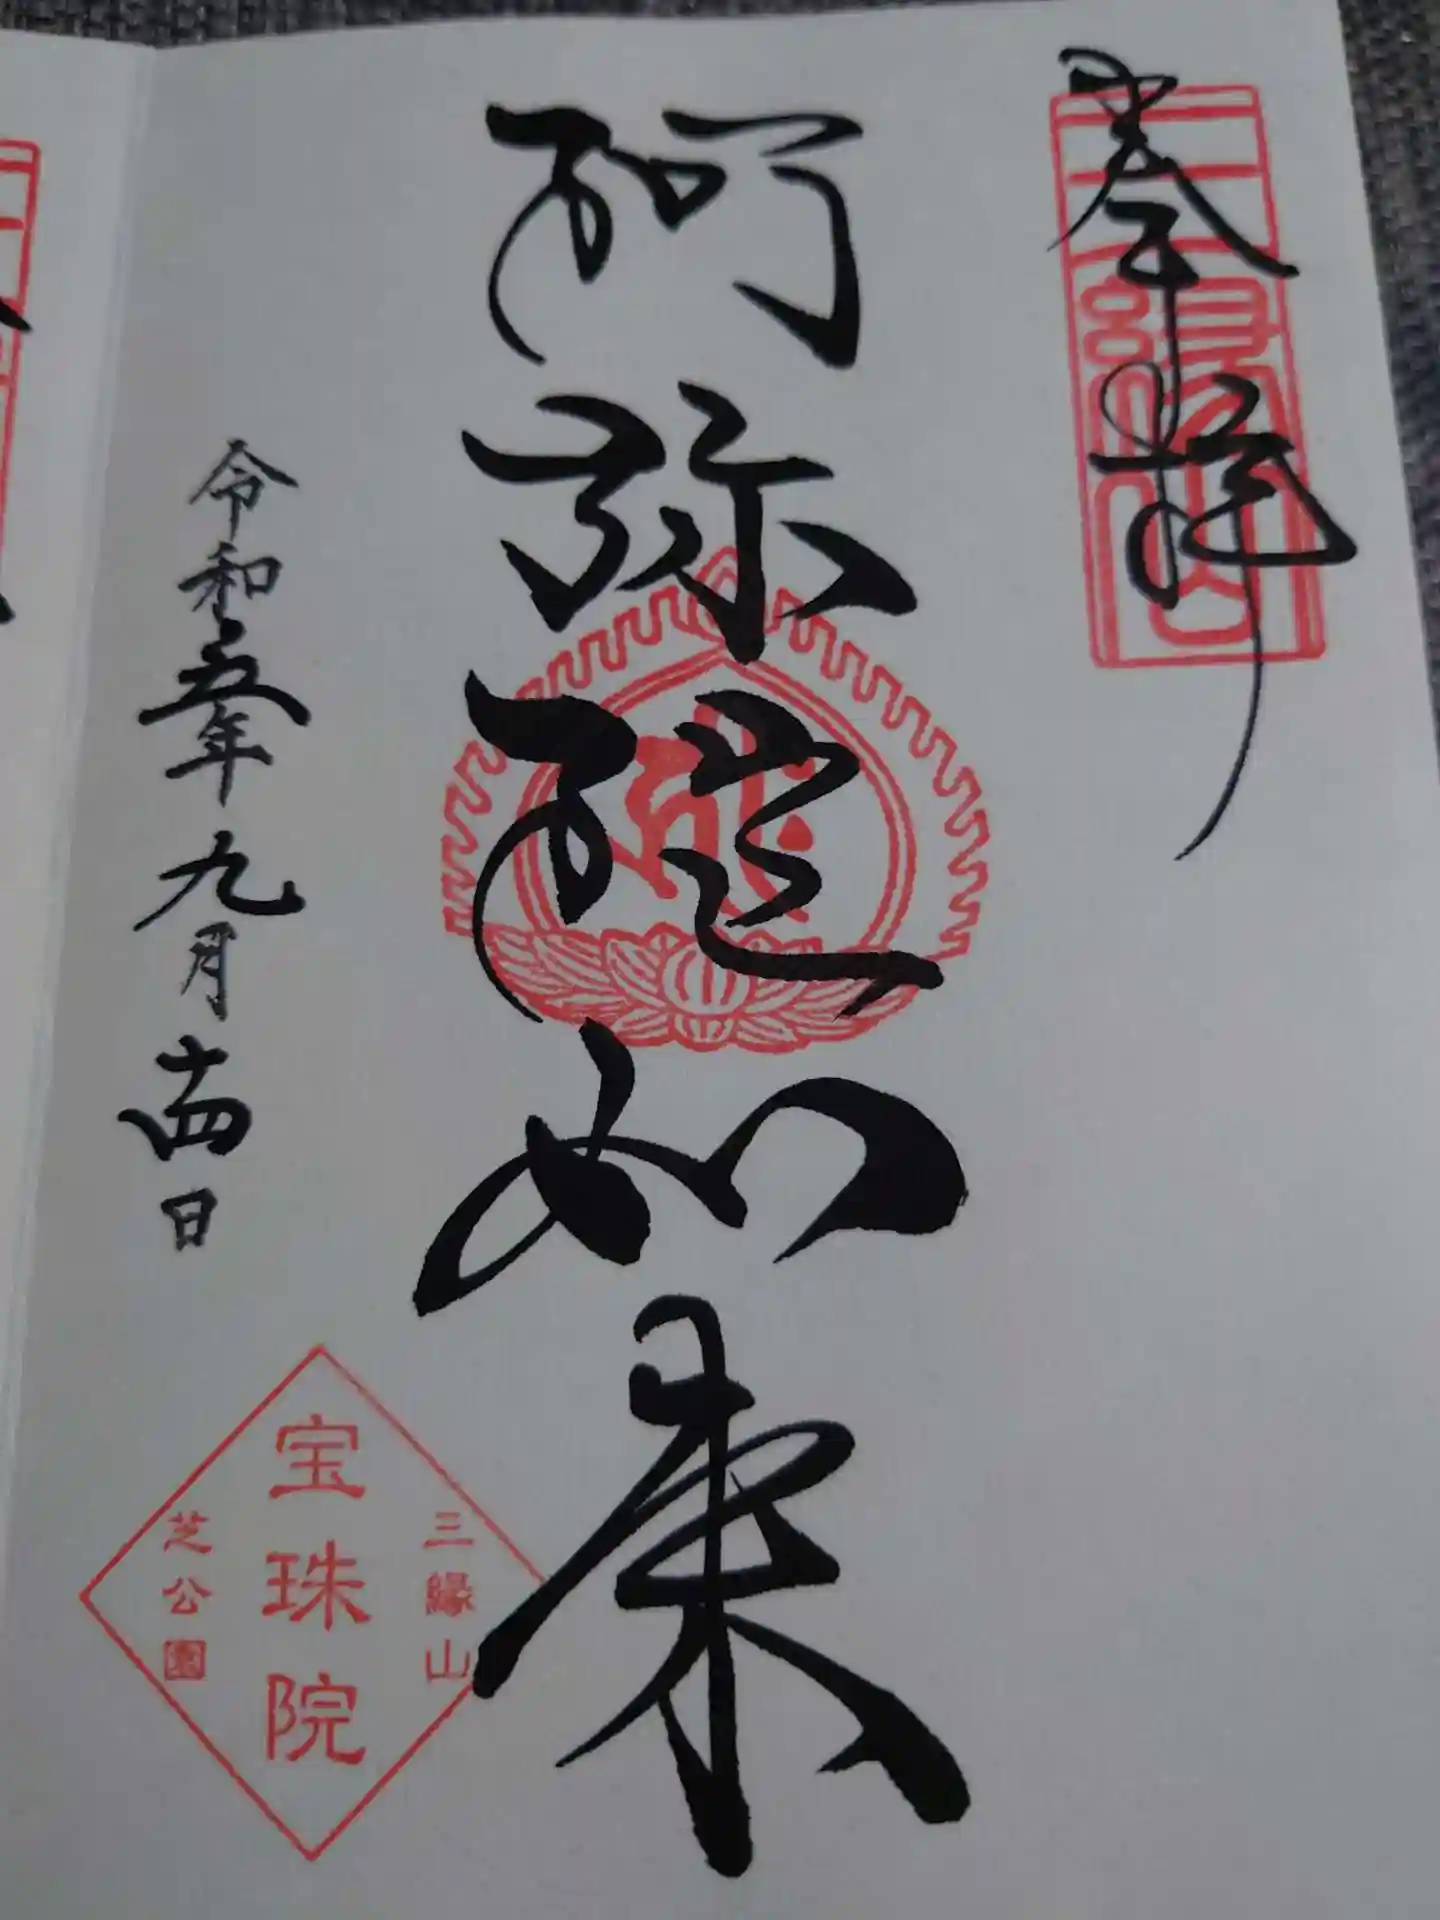 奉拝
三縁山
阿弥陀如来
令和五年九月十四日
三縁山
宝珠院
芝公園